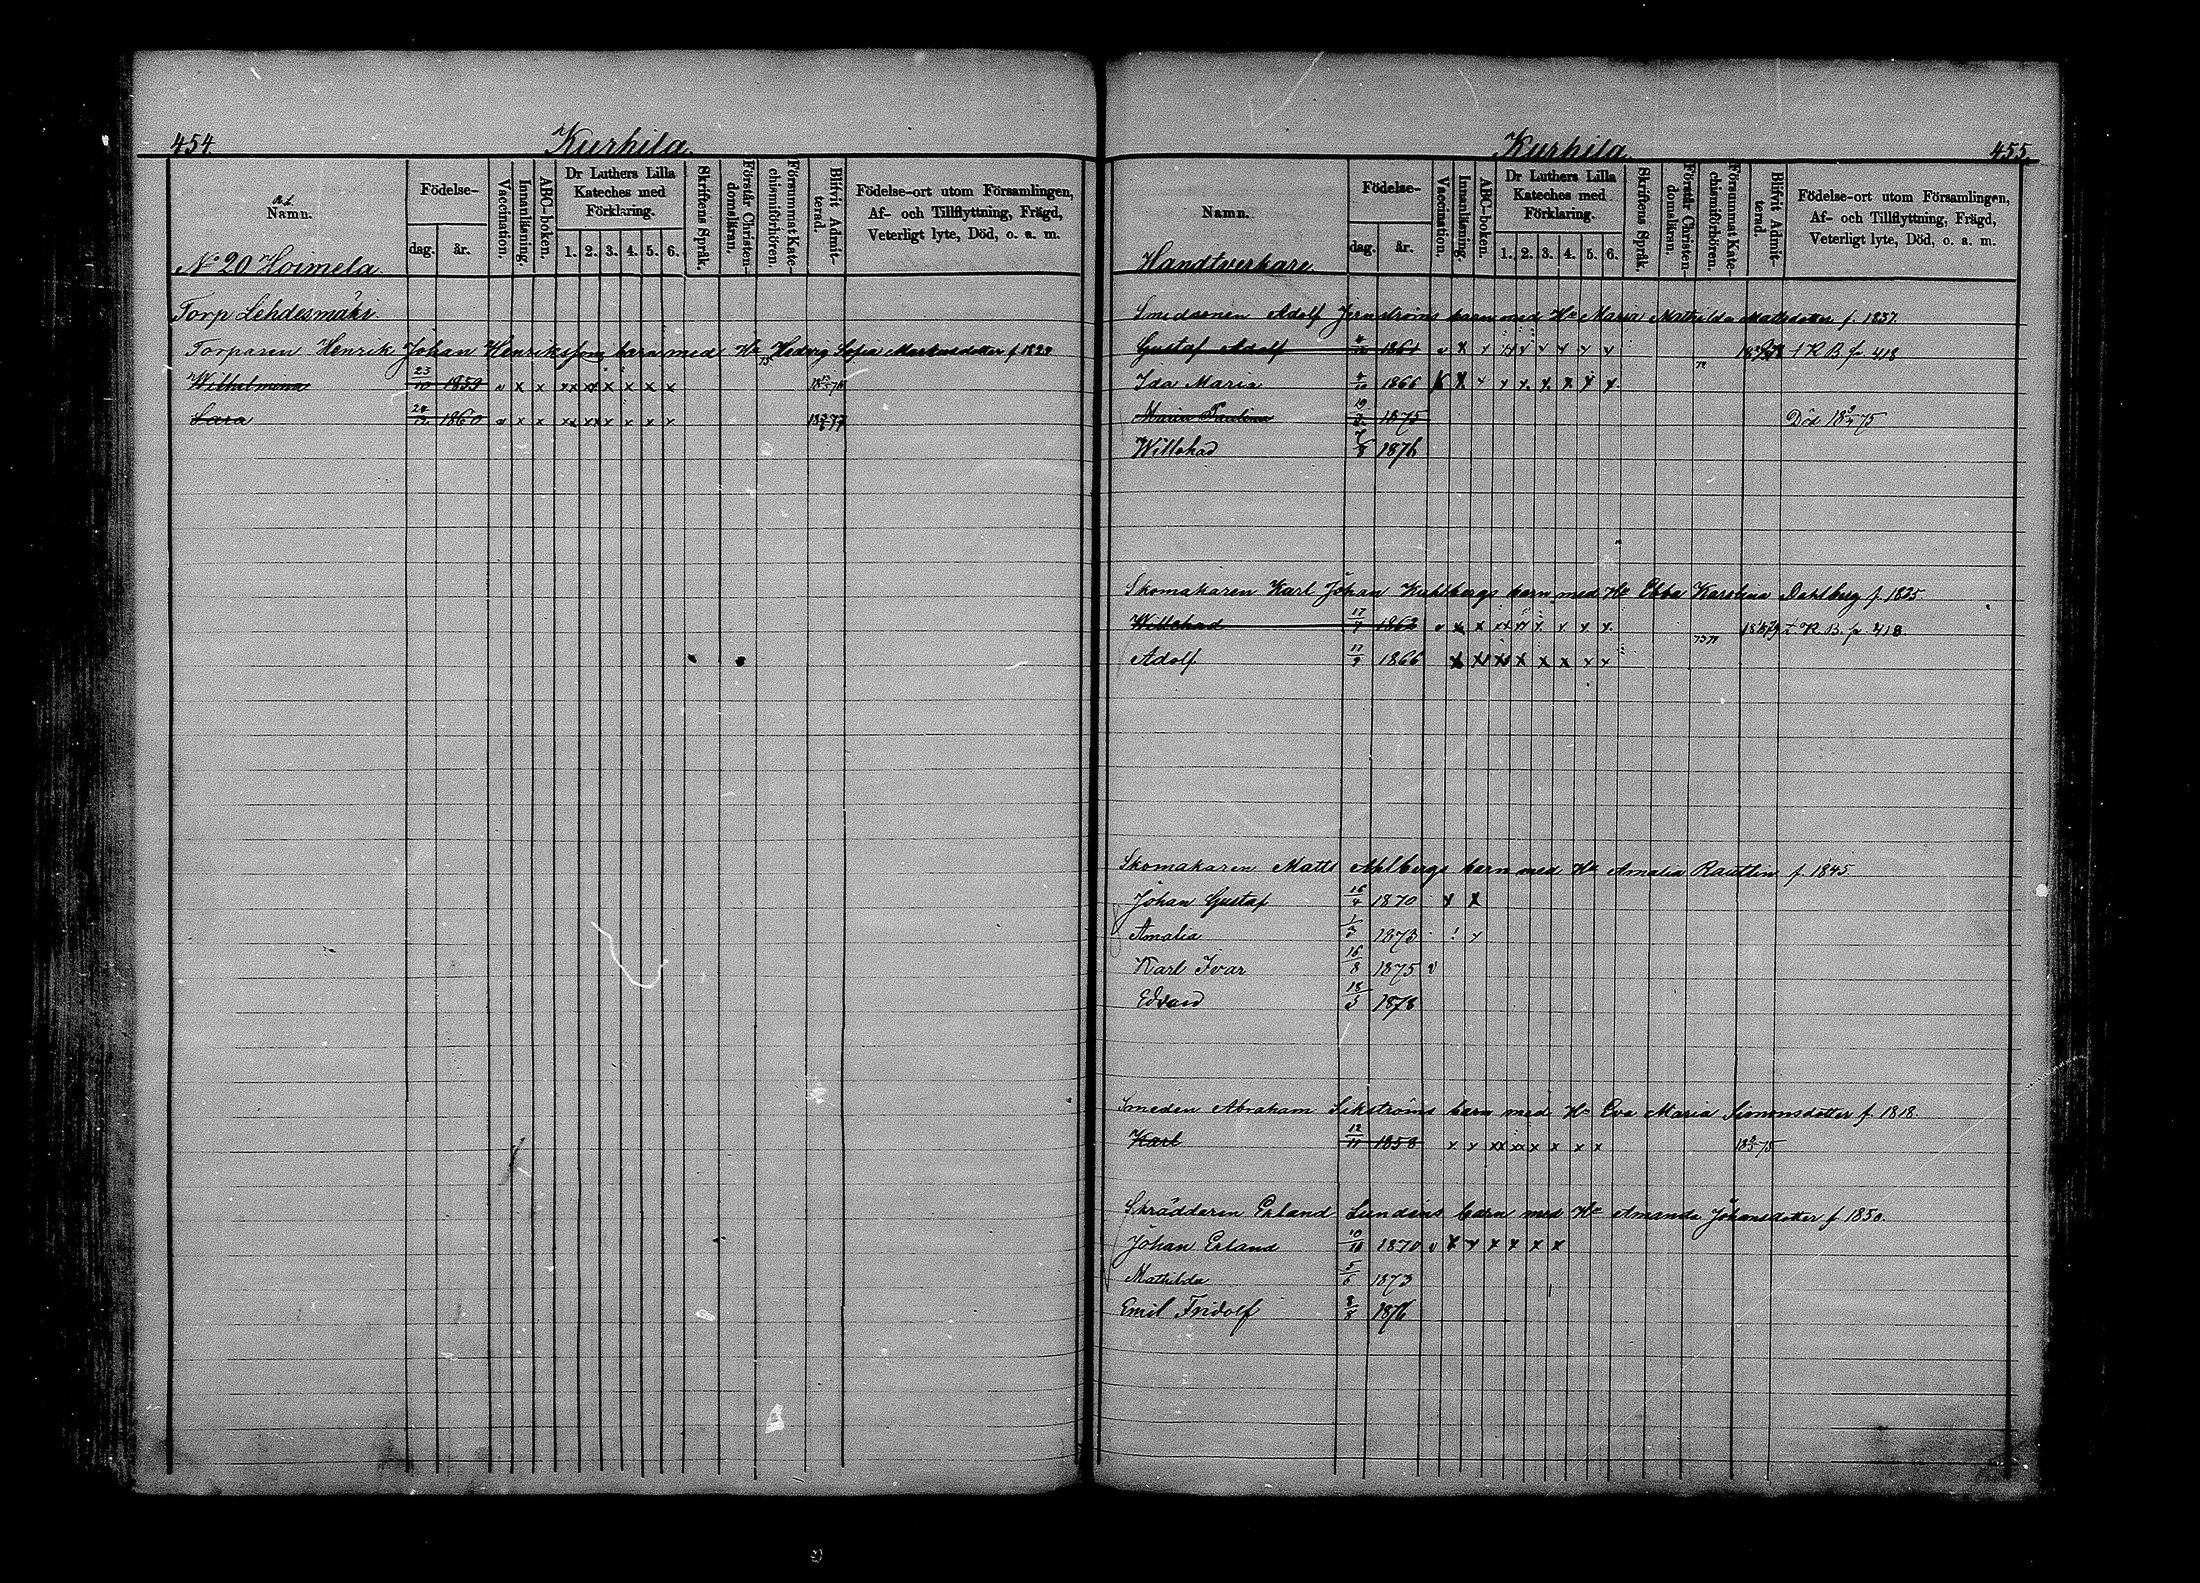 454. Kurhila.
Namn. Födelse- dag. år. Vaccination. Innanläsning. ABC-boken. Dr Luthers Lilla Kateches med Förklaring. 1. 2. 3. 4. 5. 6. Skriftens Språk. Förstår Christendomsläran. Försummat Katechismiförhören. Blifvit Admitterad. Födelse-ort utom Församlingen, Af- och Tillflyttning, Frägd, Veterligt lyte, Död, o. a. m.
No 20 Hoimela
Torp Lehdesmäki
Torparen Henrik Johan Henrikssons barn med Ha Hedvig Sofia Markusdotter f. 1829
Wilhelmina 23/10 1859 v x x xx xx x x x x
Sara 1860 v x x xx xx x x x x
Kurhila. 455.
Namn. Födelse- dag. år. Vaccination. Innanläsning. ABC-boken. Dr Luthers Lilla Kateches med Förklaring. 1. 2. 3. 4. 5. 6. Skriftens Språk. Förstår Christendomsläran. Försummat Katechismiförhören. Blifvit Admitterad. Födelse-ort utom Församlingen, Af- och Tillflyttning, Frägd, Veterligt lyte, Död, o. a. m.
Handtverkare
Smedsonen Adolf Jernströms barn med Ha Maria Mathilda Mattsdotter f. 1837.
Gustaf Adolf 1861 R B p 418
Ida Maria 1866
Maria Paulina 1875 Död
Willehad 7/8 1876
Skomakaren Karl Johan Kuhlbergs barn med Ha Ebba Karolina Dahlberg f. 1825
Willehad 1862 R. B. p 418
Adolf 1866
Skomakaren Matts Ahlbergs barn med Ha Amalia Rautlin f 1845
Johan Gustaf 16/4 1870
Amalia 1873
Karl Ivar 16/8 1875 v
Edvard 18/5 1878
Smeden Abraham Sikströms barn med Ha Eva Maria Simonsdotter f. 1818.
Karl 12/11 1858
Skräddaren Erland Lundens barn med Ha Amanda Johansdotter f 1850.
Johan Erland 1870 v x x x x x x
Mathilda 5/6 1873
Emil Fridolf 1876